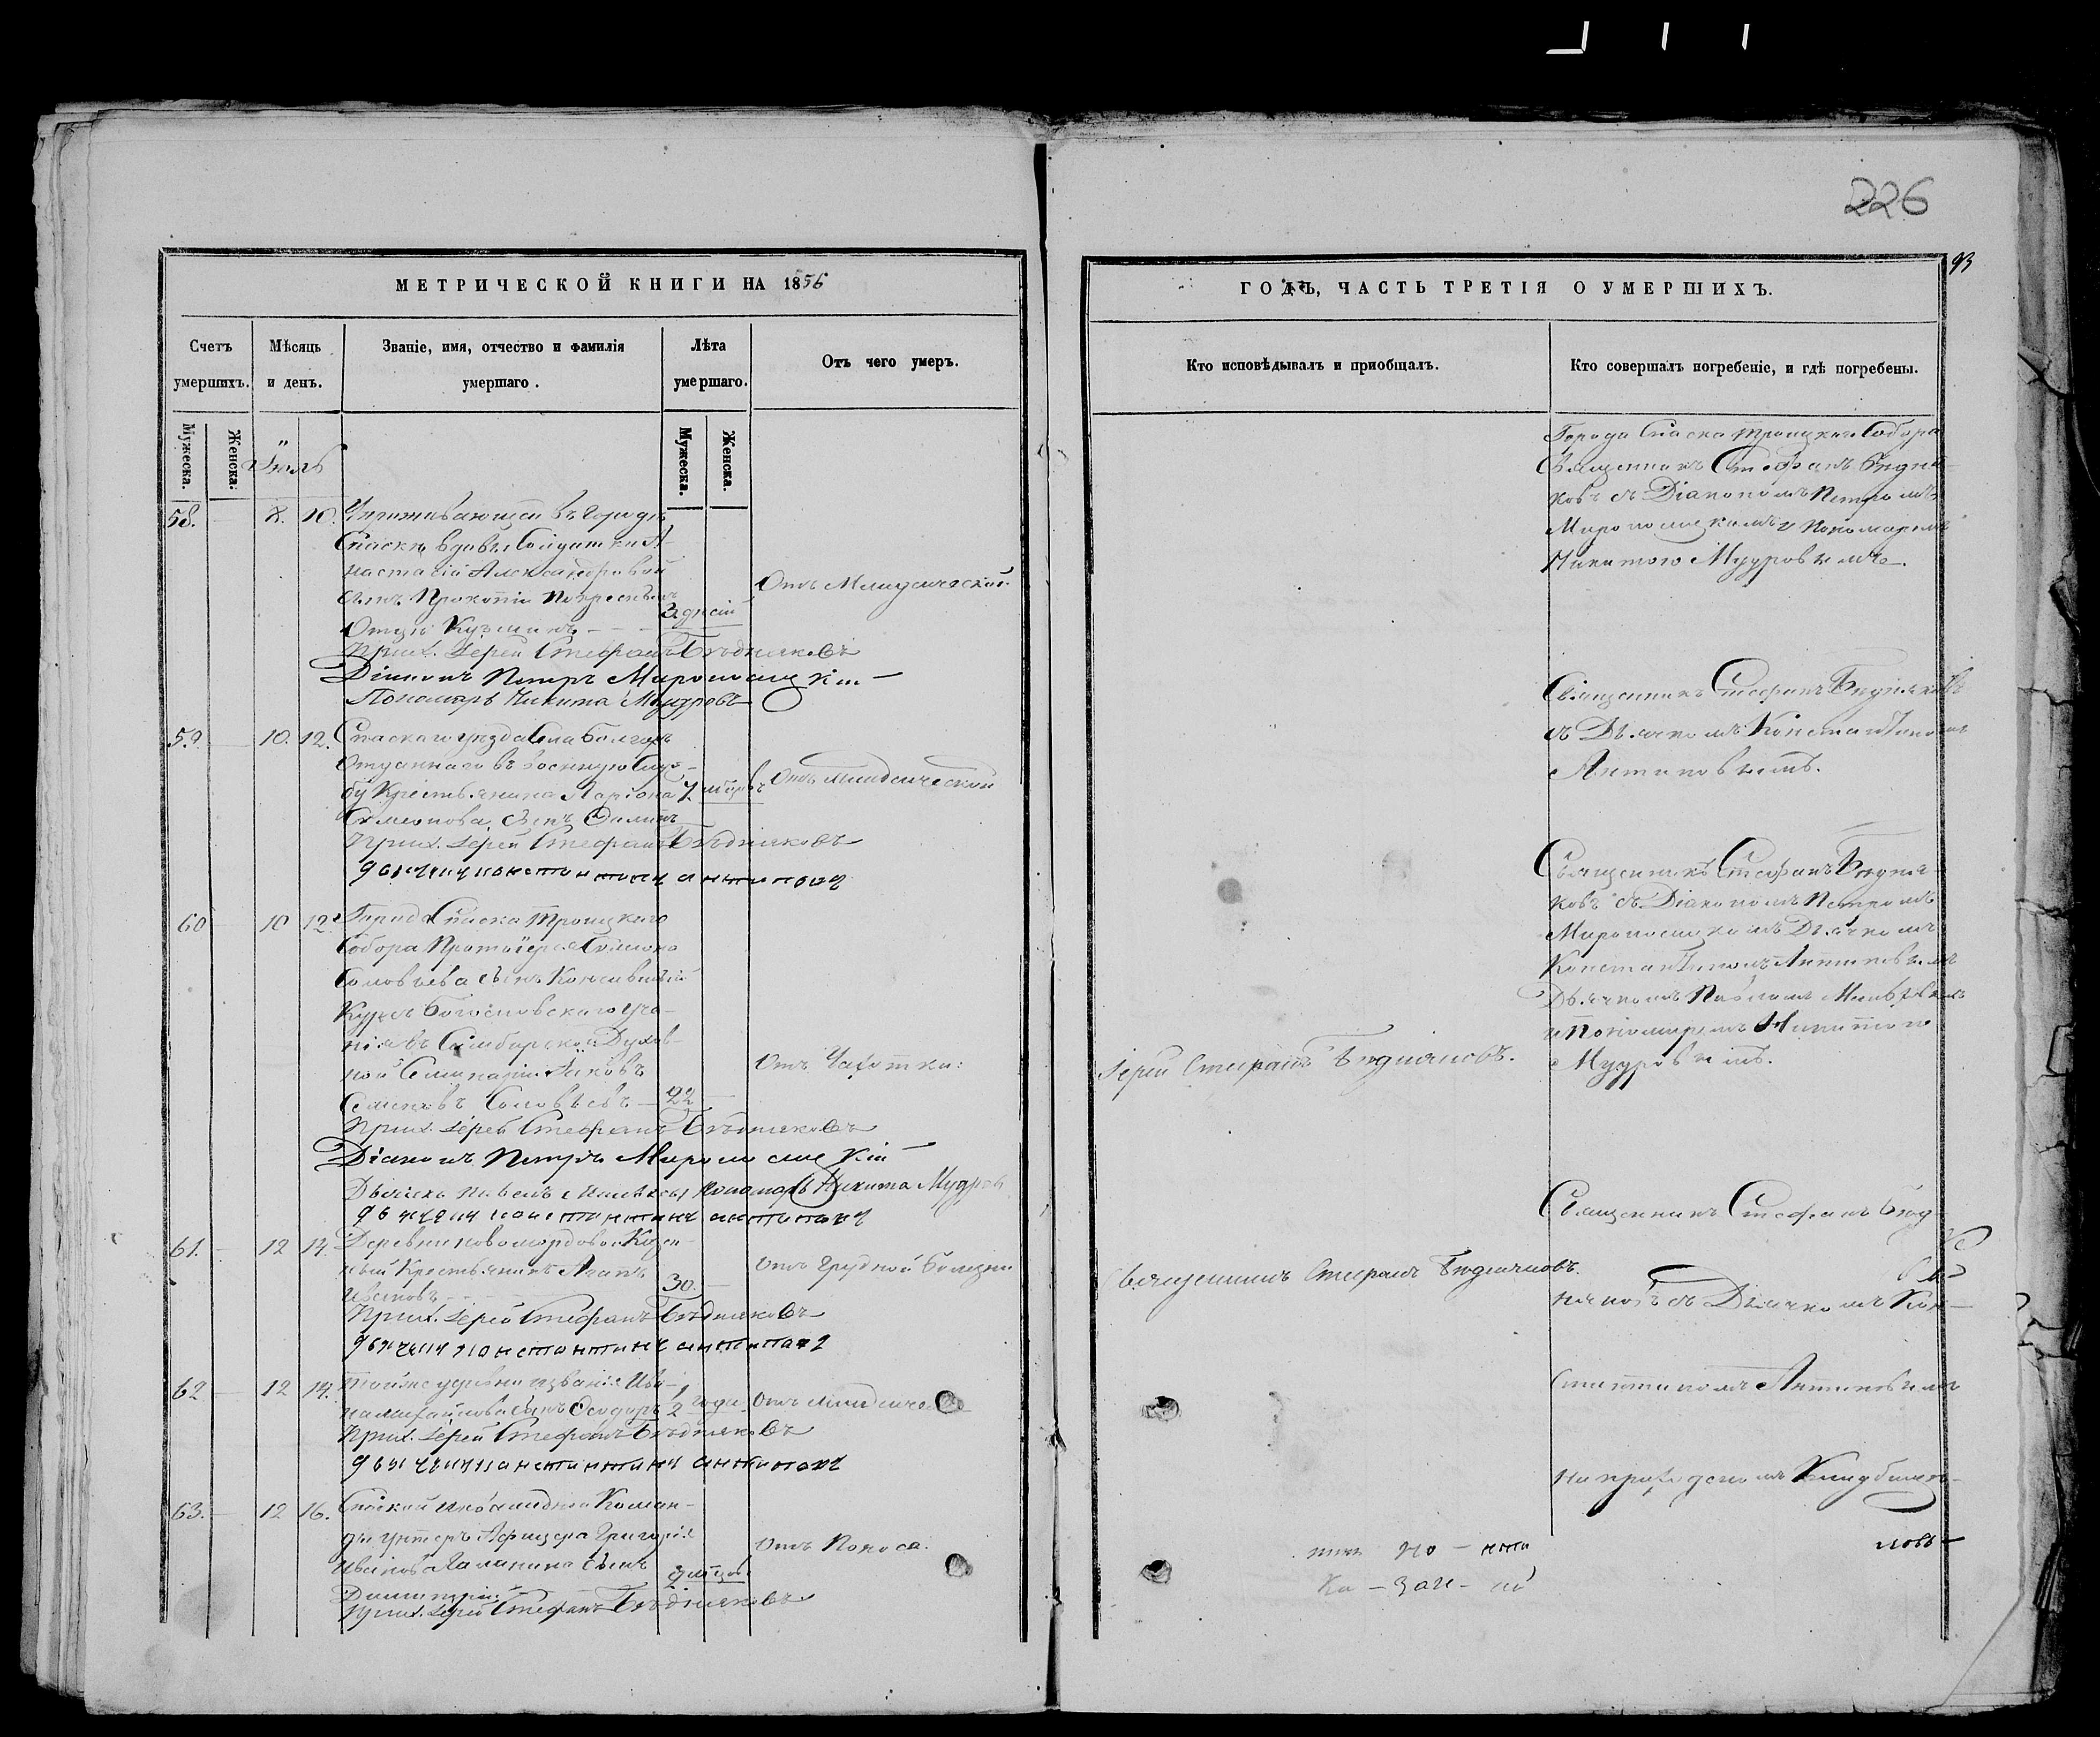 226
93
МЕТРИЧЕСКОЙ КНИГИ НА 1856
Счетъ умершихъ.
Мѣсяць и день.
Званіе, имя, отчество и фамилія умершаго.
Лѣта умершаго.
Отъ чего умеръ.
Мужеска.
Женска.
Мужеска.
Женска.
Іюль
58. 8. 10. Проживающей въ городѣ
Спаскѣ вдовы Солдатки А-
настасіи Александровой
сынъ Прокопій по крестномъ
Отцѣ Кузминъ
3 дней
Отъ Младенческой
Прих. Іерей Стефанъ Бѣдняковъ
Діаконъ Петръ Мироносицкій
Пономарь Никита Мудровъ
59. 10. 12. Спаскаго уѣзда Села Болгаръ
Отданнаго въ военную Служ-
бу Крестьянина Ларіона
7 мѣсяцовъ
Отъ младенческой
Семенова, сынъ
Прих. Іерей Стефанъ Бѣдняковъ
Дьячекъ Константинъ Антиповъ
60 10 12. Города Спаска Троицкаго
Собора Протоіерея Симеона
Соловьева сынъ Кончившій
Курсъ Богословскаго Уче-
нія въ Симбирской Духов-
ной Семинаріи Яковъ
Отъ Чахотки:
Семеновъ Соловьевъ 22
Прих. Іерей Стефанъ Бѣдняковъ
Діаконъ Петръ Мироносицкій
Дьячекъ Павелъ Пономарь Никита Мудровъ
Дьячекъ Константинъ Антиповъ
61. 12 14. Деревни Новомордовой Казен-
ный Крестьянинъ Агапъ
30.
Отъ Грудной болезни
Ивановъ
Прих. Іерей Стефанъ Бѣдняковъ
Дьячекъ Константинъ Антиповъ
62 12 14. Тойже деревни и званія Ива-
на Михайлова сынъ Ѳеодоръ
1/2 года
Отъ младенческой
Прих. Іерей Стефанъ Бѣдняковъ
Дьячекъ Константинъ Антиповъ
63. 12 16. Спаской инвалидной Коман-
ды Унтеръ Афицера Григорія
Отъ Поноса.
Иванова сынъ
Димитрій
Прих. Іерей Стефанъ Бѣдняковъ
ГОДЪ, ЧАСТЬ ТРЕТІЯ О УМЕРШИХЪ.
Кто исповѣдывалъ и приобщалъ.
Кто совершалъ погребеніе, и гдѣ погребены.
Города Спаска Троицкаго Собора
Священникъ Стефанъ Бѣдня-
ковъ съ Діакономъ Петромъ
Мироносицкимъ и Пономаремъ
Никитою Мудровымъ.
Священникъ Стефанъ Бѣдняковъ
съ Дьячкомъ Константиномъ
Антиповымъ.
Священникъ Стефанъ Бѣдня-
ковъ съ Діакономъ Петромъ
Мироносицкимъ Дьячкомъ
Константиномъ Антиповымъ
Дьячкомъ Павломъ
и Пономаремъ Никитою
Мудровымъ.
Іерей Стефанъ Бѣдняковъ.
Священникъ Стефанъ Бѣд-
Священникъ Стефанъ Бѣдняковъ.
няковъ съ Дьячкомъ Кон-
стантиномъ Антиповымъ
На приходскомъ Кладбищѣ